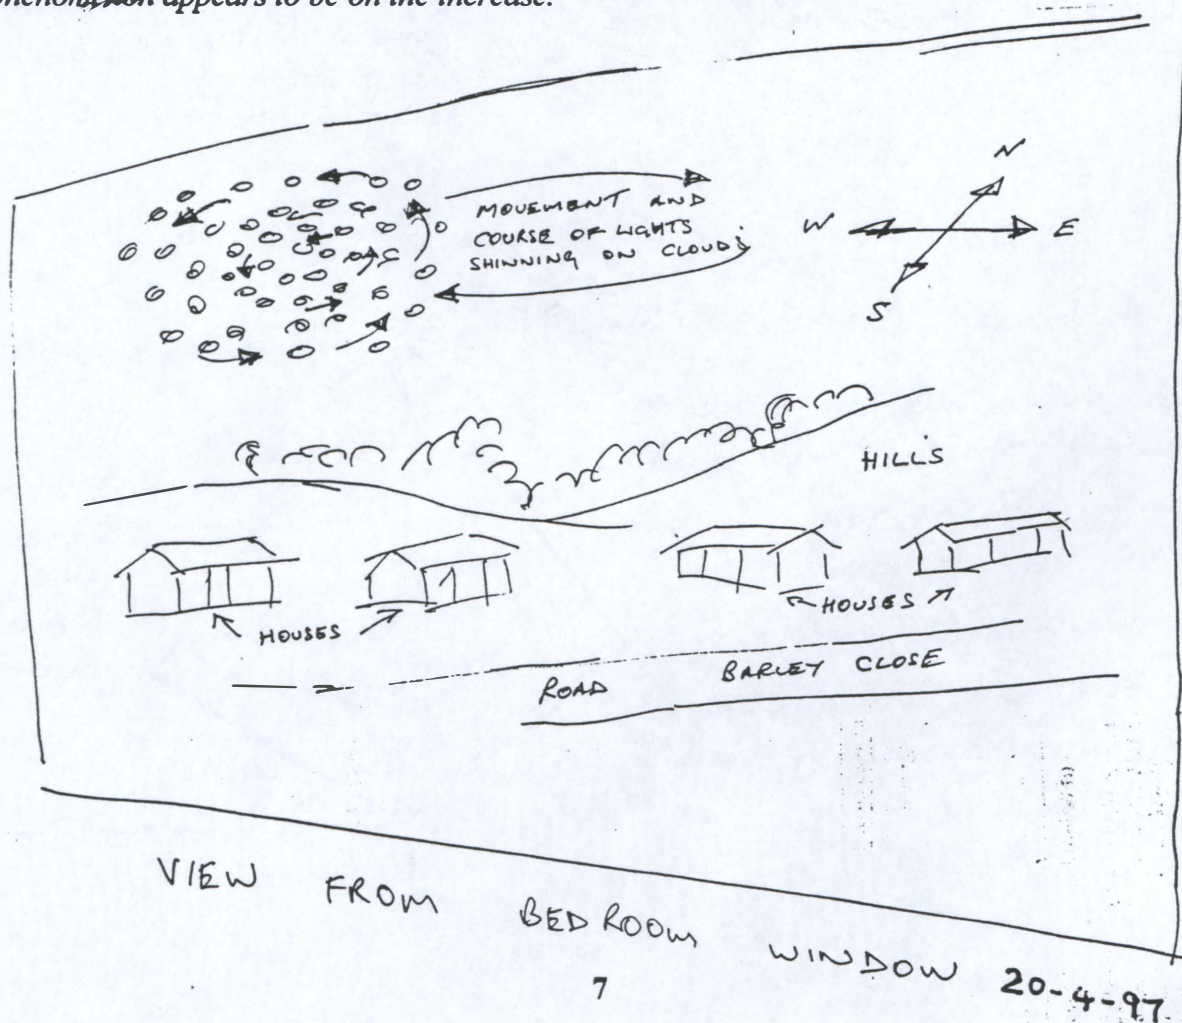 appears to be on the increase.
MOVEMENT AND
COURSE OF LIGHTS
SHINNING ON CLOUDS
N
W E
S
HILLS
HOUSES
HOUSES
BARLEY CLOSE
ROAD
VIEW FROM BEDROOM WINDOW 20-4-97
7